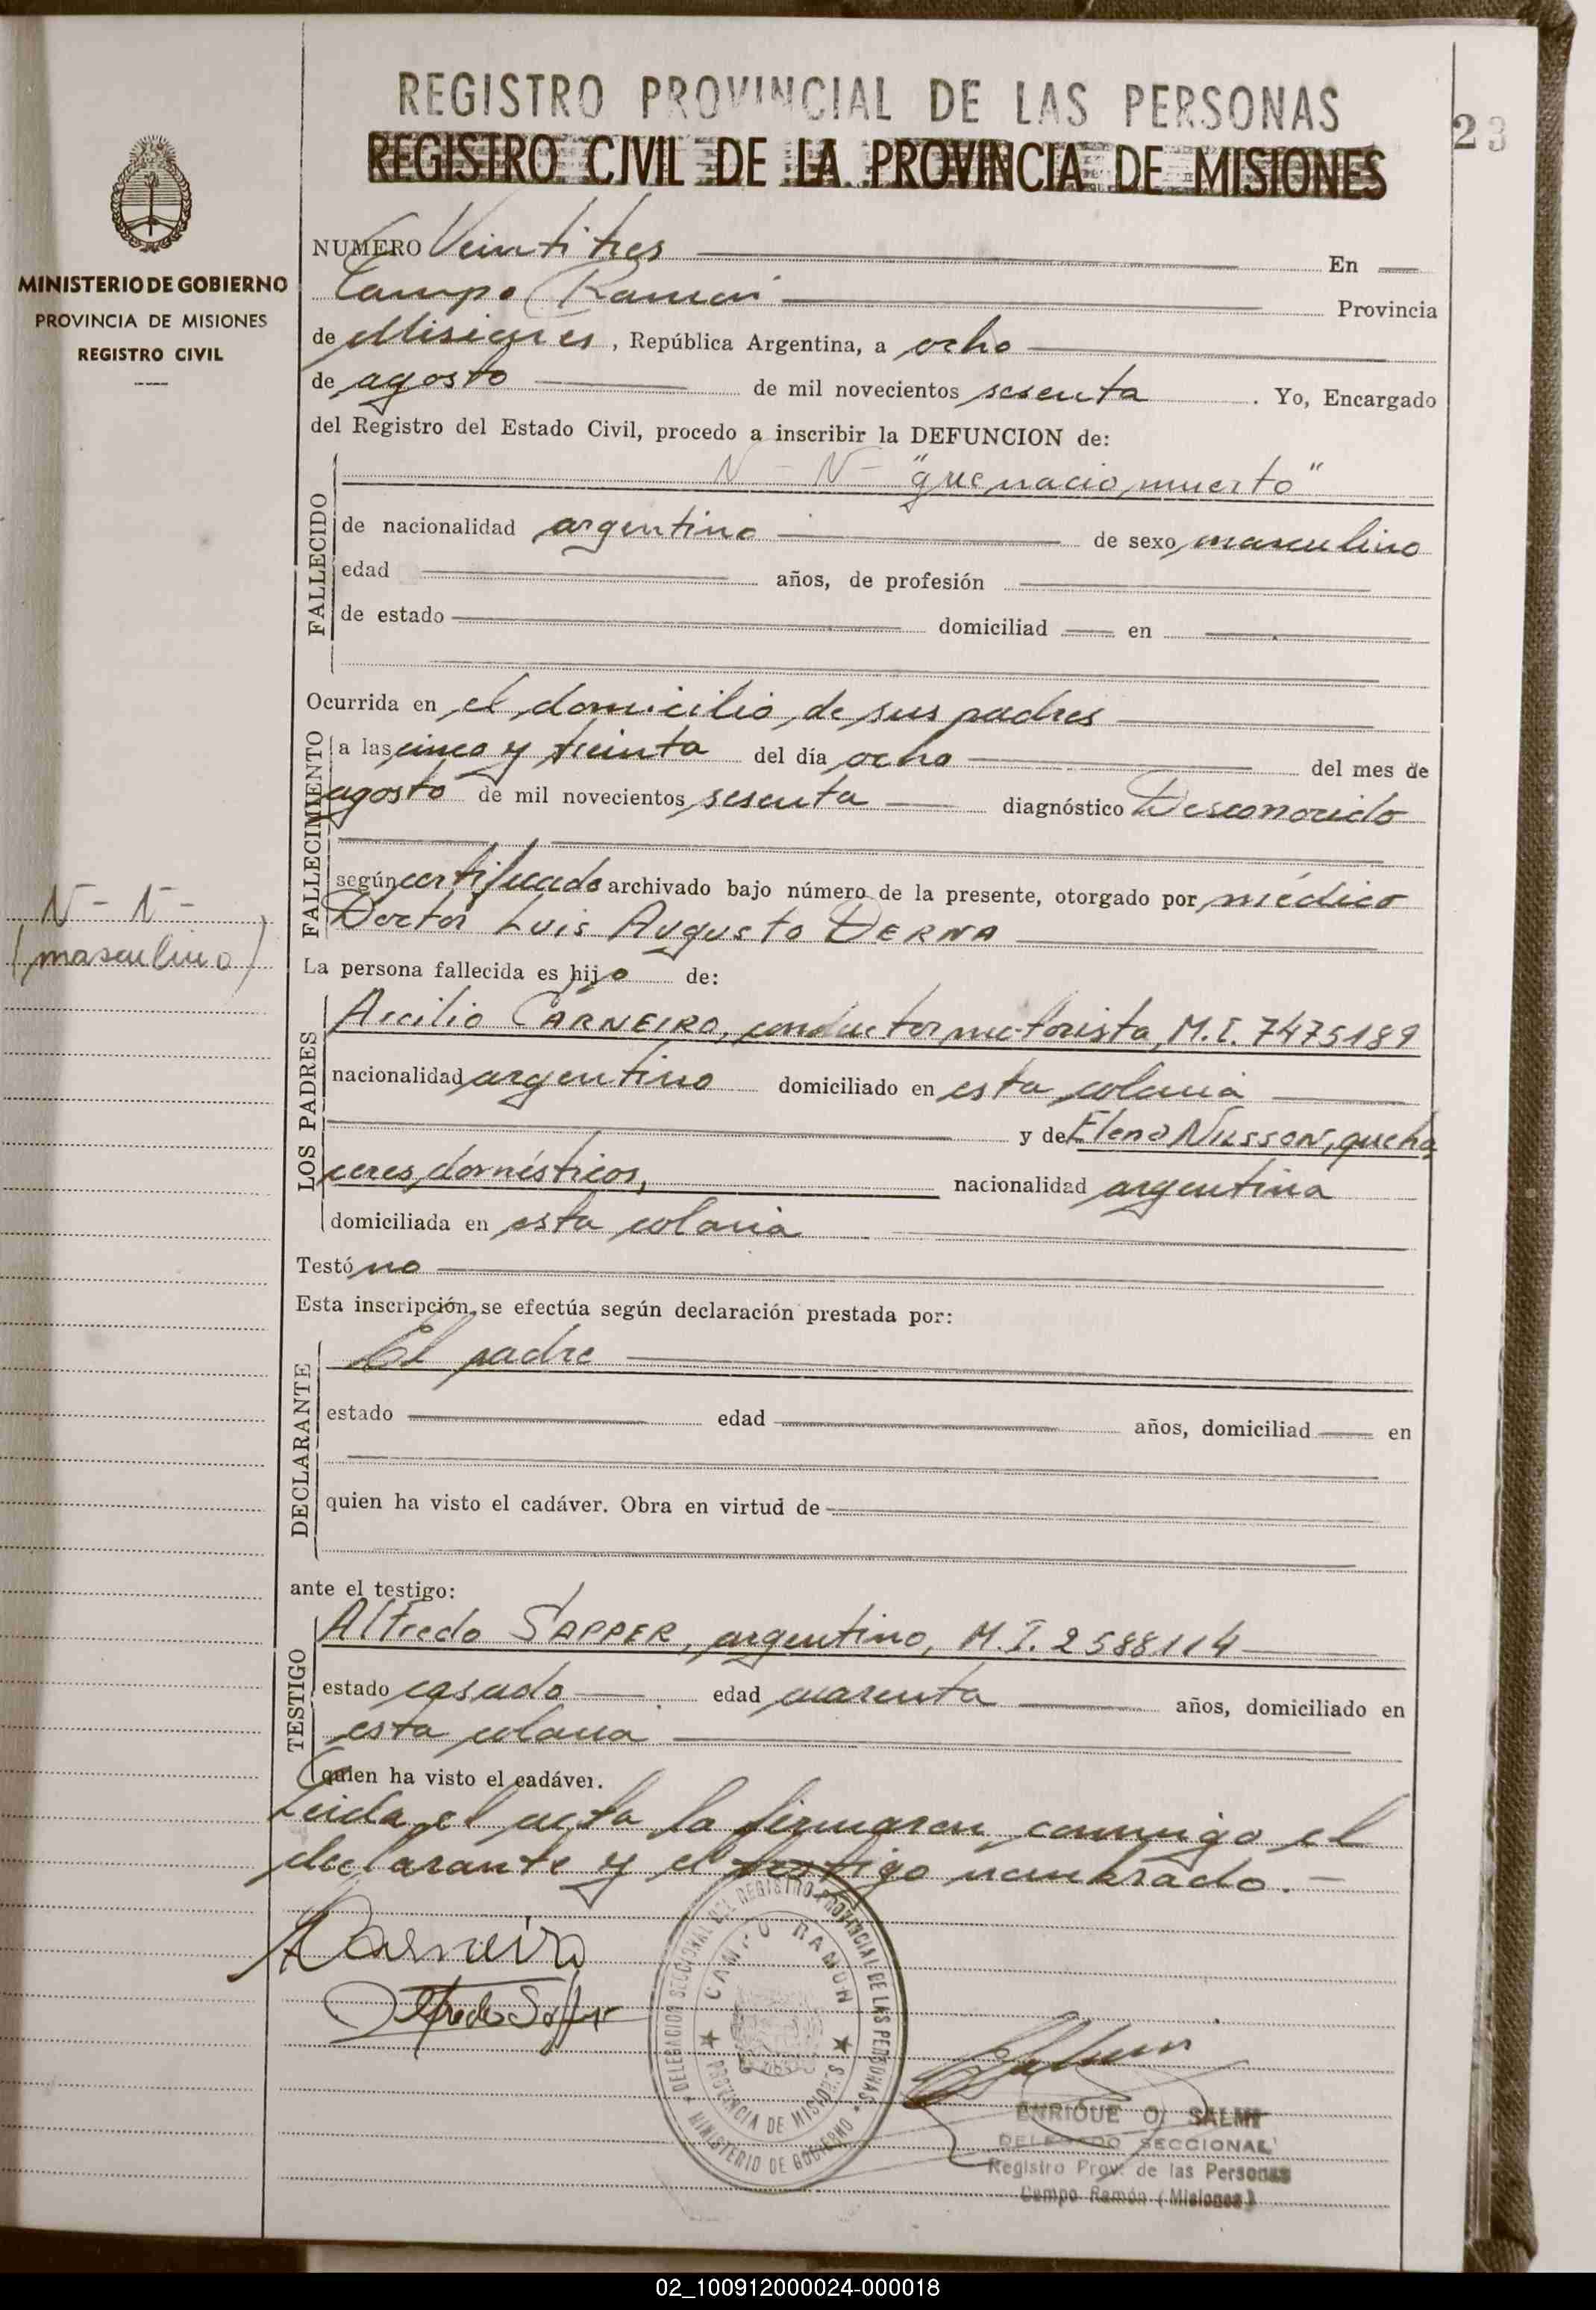 REGISTRO PROVINCIAL DE LAS PERSONAS
REGISTRO CIVIL DE LA PROVINCIA DE MISIONES
23
MINISTERIO DE GOBIERNO
PROVINCIA DE MISIONES
REGISTRO CIVIL
NUMERO Veintitres En
Campo Ramón Provincia
de Misiones, República Argentina, a ocho
de agosto de mil novecientos sesenta. Yo, Encargado
del Registro del Estado Civil, procedo a inscribir la DEFUNCION de:
FALLECIDO
N - N - "que nacio muerto"
de nacionalidad argentino de sexo masculino
edad años, de profesión
de estado domiciliad en
Ocurrida en el domicilio de sus padres
FALLECIMIENTO
a las cinco y treinta del día ocho del mes de
agosto de mil novecientos sesenta diagnóstico Desconocido
según certificado archivado bajo número de la presente, otorgado por médico
Doctor Luis Augusto DERNA
N - N -
(masculino)
La persona fallecida es hijo de:
LOS PADRES
Arcilio CARNEIRO, conductor motorista, M.I. 7475189
nacionalidad argentino domiciliado en esta colonia
y de Elena NILSSON, queha
ceres domésticos, nacionalidad argentina
domiciliada en esta colonia
Testó no
Esta inscripción se efectúa según declaración prestada por:
DECLARANTE
El padre
estado edad años, domiciliad en
quien ha visto el cadáver. Obra en virtud de
ante el testigo:
TESTIGO
Alfredo SAPPER, argentino, M.I. 2588114
estado casado edad cuarenta años, domiciliado en
esta colonia
quien ha visto el cadáver.
Leida el acta la firmaron conmigo el
declarante y el testigo nombrado.-
A Carneiro
Alfredo Sapper
DELEGACION SECCIONAL DEL REGISTRO PROVINCIAL DE LAS PERSONAS
CAMPO RAMON
PROVINCIA DE MISIONES
MINISTERIO DE GOBIERNO
ENRIQUE O. SALMI
DELEGADO SECCIONAL
Registro Prov. de las Personas
Campo Ramón (Misiones)
02_100912000024-000018